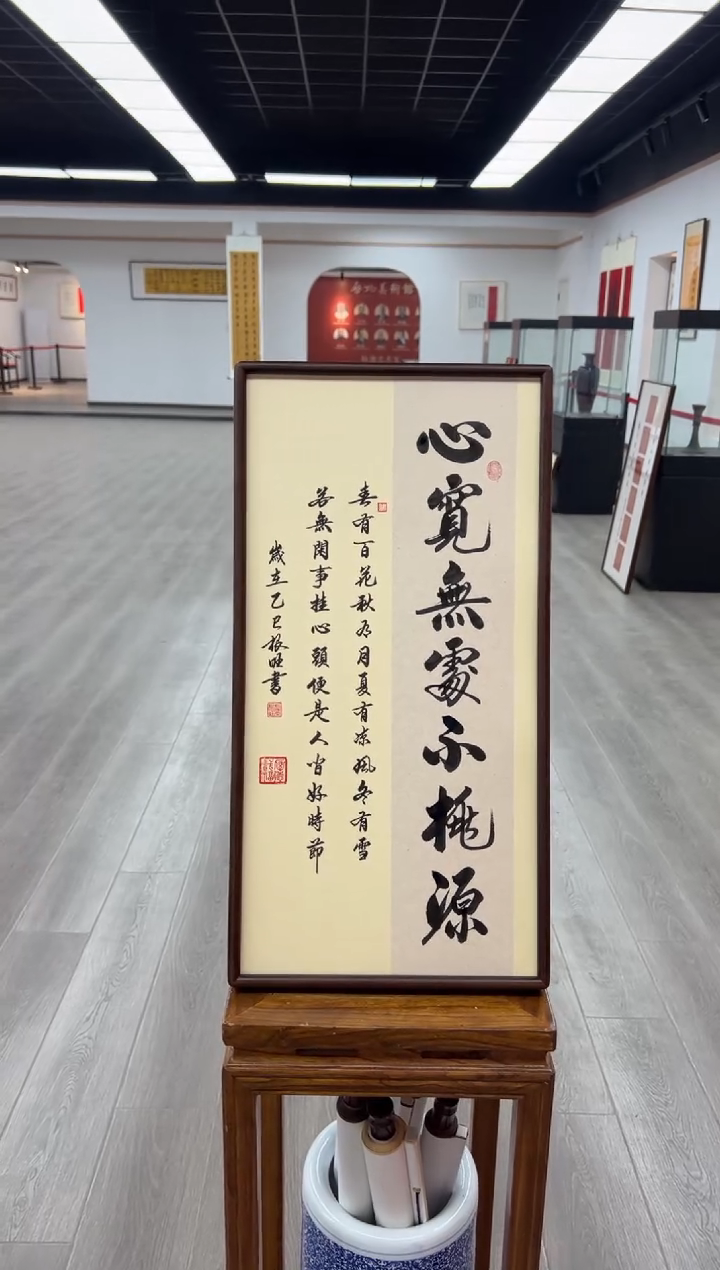 心寬無處不桃源
春有百花秋有月夏有涼風冬有雪
若無閑事挂心頭便是人間好時節
歲在乙巳振旺書
美術館